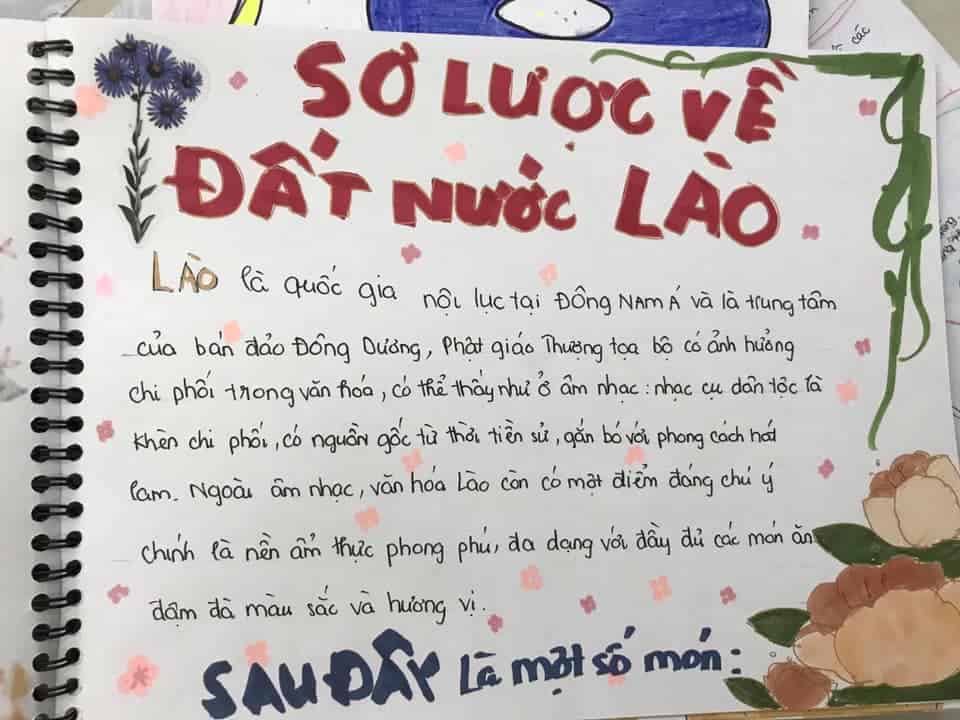 SƠ LƯỢC VỀ
ĐẤT NƯỚC LÀO
LÀO là quốc gia nội lục tại ĐÔNG NAM Á và là trung tâm
của bán đảo Đông Dương, Phật giáo Thượng tọa bộ có ảnh hưởng
chi phối trong văn hóa, có thể thấy như ở âm nhạc: nhạc cụ dân tộc là
khèn chi phối, có nguồn gốc từ thời tiền sử, gắn bó với phong cách hát
lam. Ngoài âm nhạc, văn hóa Lào còn có một điểm đáng chú ý
chính là nền ẩm thực phong phú, đa dạng với đầy đủ các món ăn
đậm đà màu sắc và hương vị.
SAU ĐÂY là một số món:
các